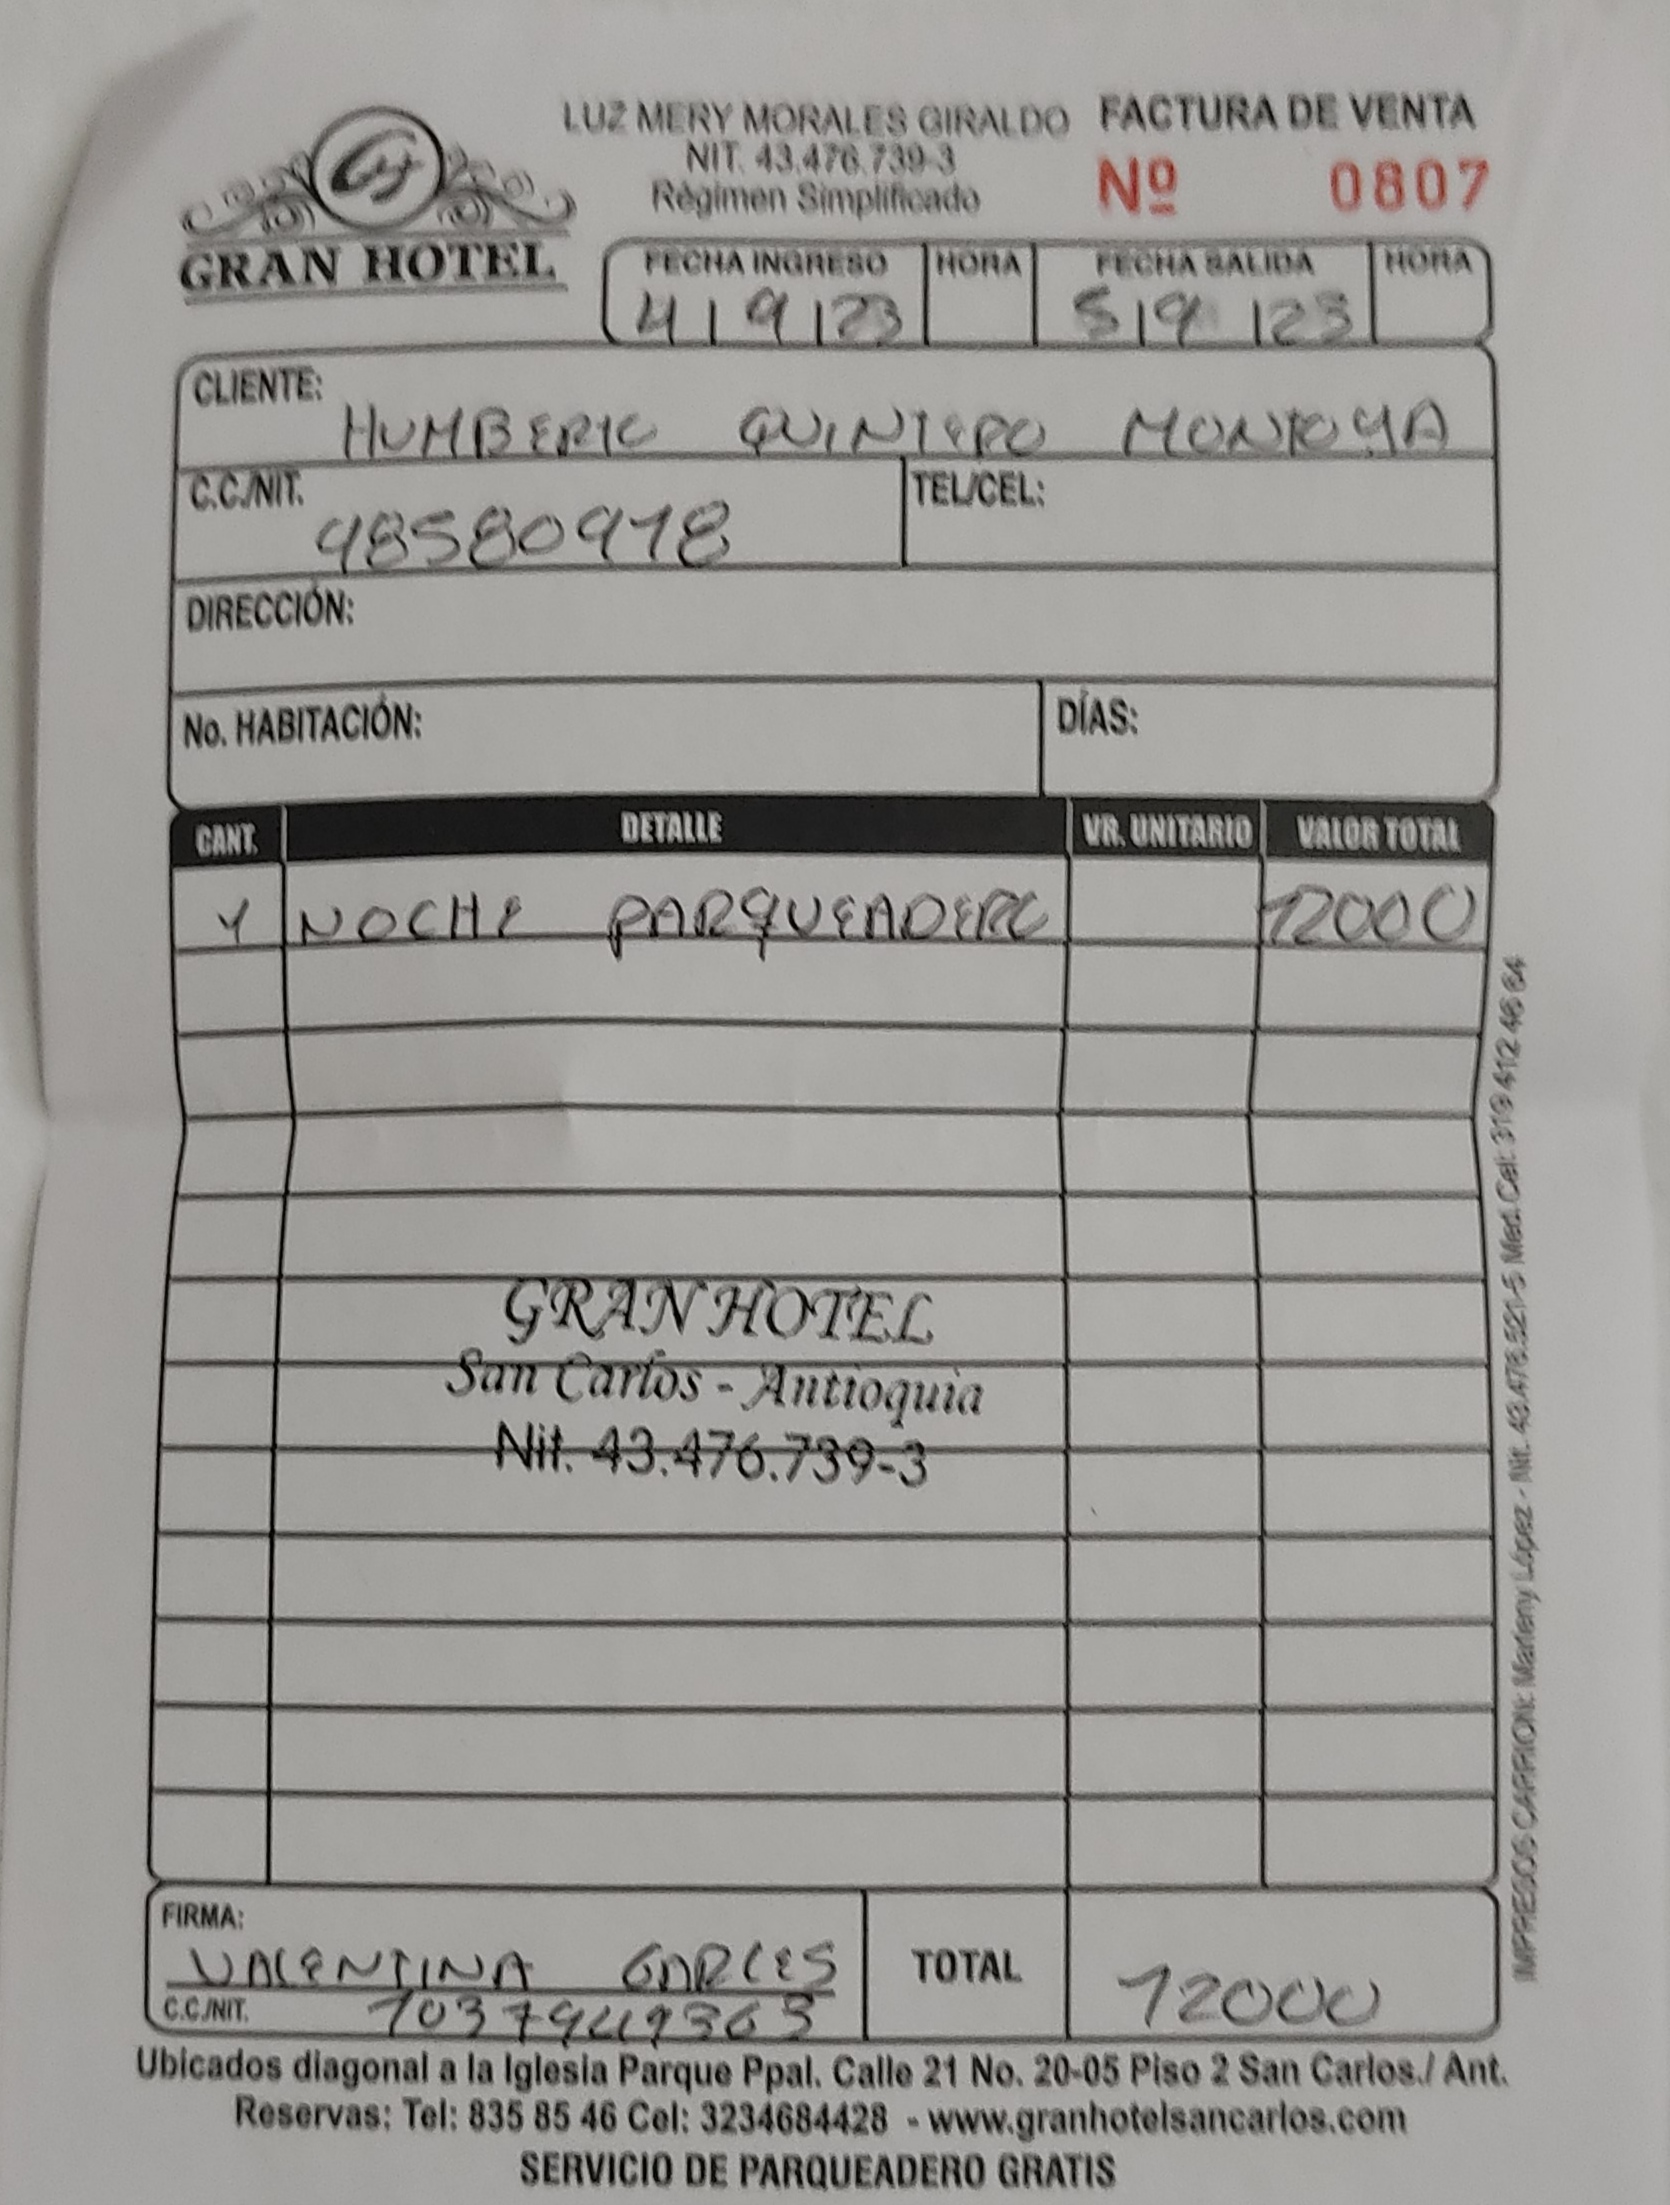 LUZ MERY MORALES GIRALDO
NIT. 43.476.739-3
Régimen Simplificado
FACTURA DE VENTA
Nº 0807
GH
GRAN HOTEL
FECHA INGRESO HORA FECHA SALIDA HORA
4 | 9 | 23 5 | 9 | 23
CLIENTE:
HUMBERTO QUINTERO MONTOYA
C.C./NIT. 98580978 TEL/CEL:
DIRECCIÓN:
No. HABITACIÓN: DÍAS:
CANT. DETALLE VR. UNITARIO VALOR TOTAL
1 NOCHE PARQUEADERO 12000
GRAN HOTEL
San Carlos - Antioquia
Nit. 43.476.739-3
FIRMA:
VALENTINA GARCES
C.C./NIT. 1037949363
TOTAL 12000
Ubicados diagonal a la Iglesia Parque Ppal. Calle 21 No. 20-05 Piso 2 San Carlos./ Ant.
Reservas: Tel: 835 85 46 Cel: 3234684428 - www.granhotelsancarlos.com
SERVICIO DE PARQUEADERO GRATIS
IMPRESOS CARRION: Marleny López - Nit. 43.476.521-5 Med. Cel: 319 412 46 64